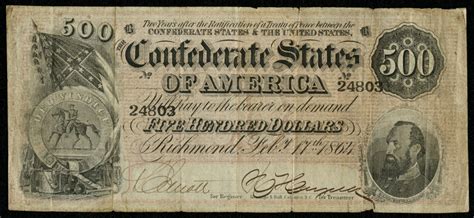 500
Two Years after the Ratification of a Treaty of Peace between the
CONFEDERATE STATES & THE UNITED STATES,
THE
Confederate States
500
No
No
OF AMERICA
24803
Will pay to the bearer on demand
24803
FIVE HUNDRED DOLLARS
Richmond, Feby. 17th 1864
for Register
for Treasurer